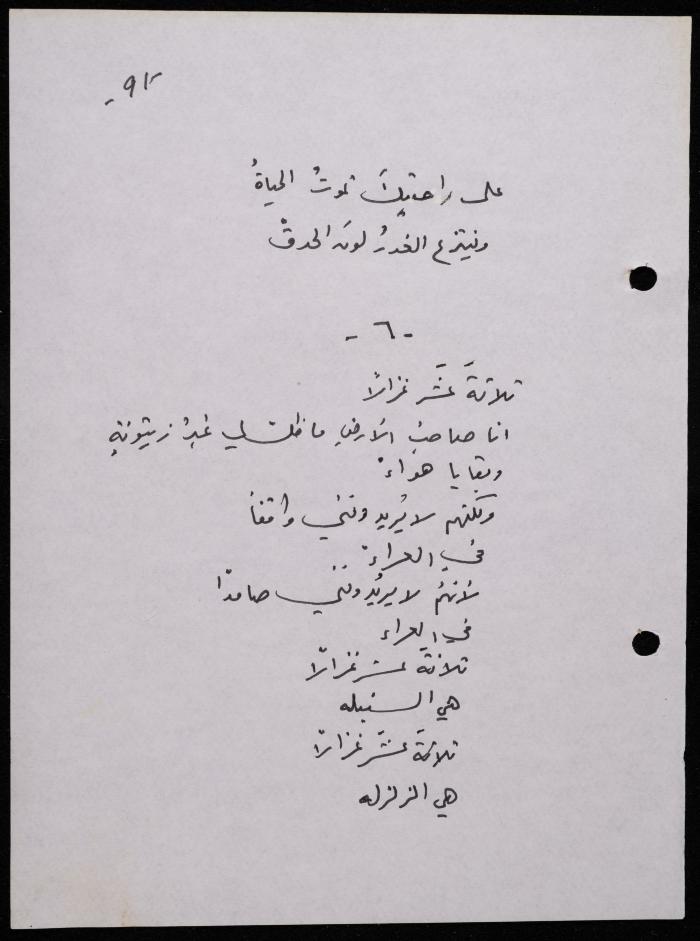 على راحتيكَ تموتُ الحياةُ
وينتزع الغدرُ لونَ الحدقْ
-٦-
ثلاثةَ عَشَر غزالًا
انا صاحبُ الأرضِ ما ظلّ لي غيرُ زيتونةٍ
وبقايا هواءْ
ولكنهم لا يُريدونني واقفاً
في العراءْ
لأنهمُ لا يريُدونني صامدًا
في العراء
ثلاثةَ عشر غزالًا
هي السنبله
ثلاثةَ عَشَر غزالًا
هي الزلزله